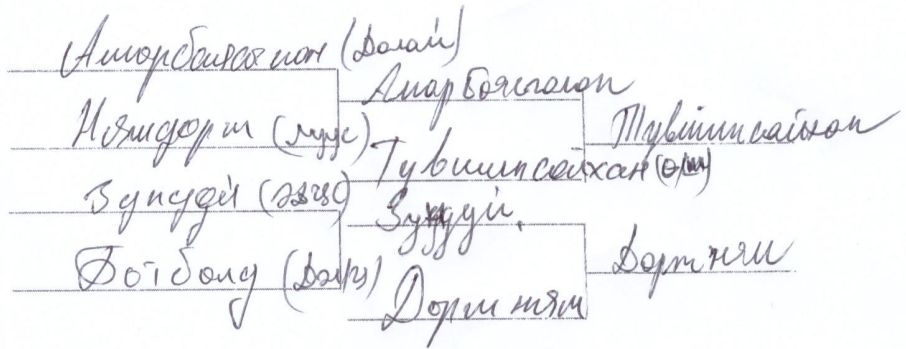 Амарбаясгалан (Далай)
Нямдорж (
Зундуй (
Ботболд (
Амарбаясгалан
Түвшинсайхан
Зундуй.
Доржням
Түвшинсайхан
Доржням